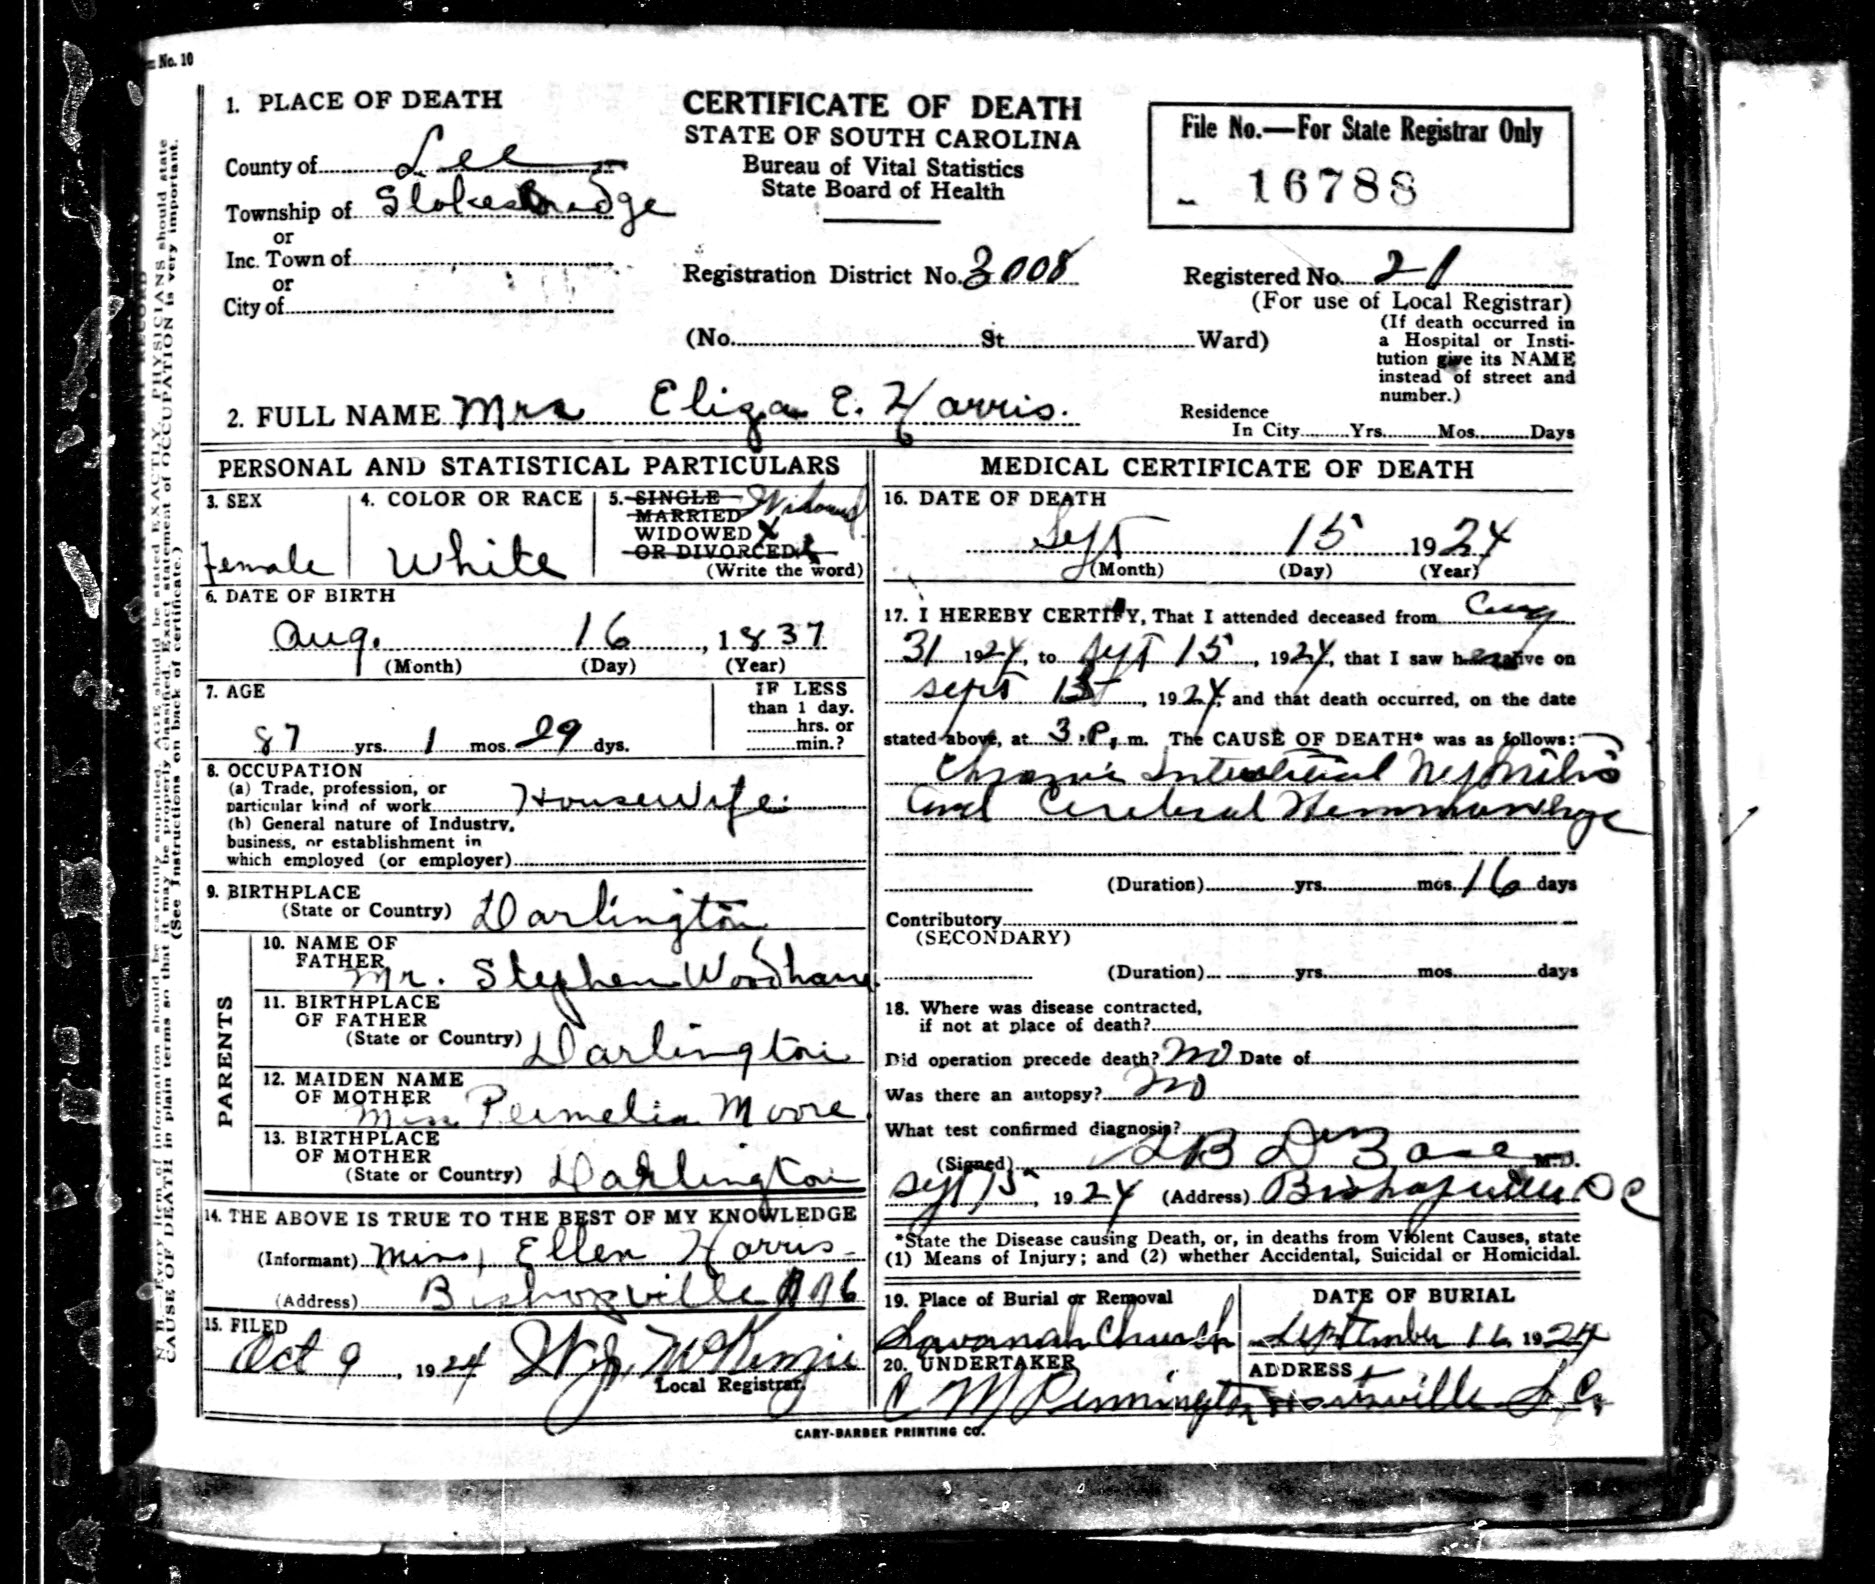 No. 10
1. PLACE OF DEATH
County of Lee
Township of Stokes Bridge
or
Inc. Town of
or
City of
CERTIFICATE OF DEATH
STATE OF SOUTH CAROLINA
Bureau of Vital Statistics
State Board of Health
File No.—For State Registrar Only
16788
Registration District No. 3008
Registered No. 21
(For use of Local Registrar)
(No. St. Ward)
(If death occurred in
a Hospital or Insti-
tution give its NAME
instead of street and
number.)
2. FULL NAME Mrs Eliza E. Harris.
Residence
In City Yrs. Mos. Days
PERSONAL AND STATISTICAL PARTICULARS
3. SEX
Female
4. COLOR OR RACE
White
5. SINGLE Widowed
MARRIED
WIDOWED X
OR DIVORCED
(Write the word)
6. DATE OF BIRTH
Aug. 16, 1837
(Month) (Day) (Year)
7. AGE
87 yrs. 1 mos. 29 dys.
IF LESS
than 1 day.
hrs. or
min.?
8. OCCUPATION
(a) Trade, profession, or
particular kind of work Housewife.
(b) General nature of Industry,
business, or establishment in
which employed (or employer)
9. BIRTHPLACE
(State or Country) Darlington
PARENTS
10. NAME OF
FATHER
Mr. Stephen Woodham
11. BIRTHPLACE
OF FATHER
(State or Country) Darlington
12. MAIDEN NAME
OF MOTHER
Miss Permelia Moore
13. BIRTHPLACE
OF MOTHER
(State or Country) Darlington
14. THE ABOVE IS TRUE TO THE BEST OF MY KNOWLEDGE
(Informant) Miss Ellen Harris
(Address) Bishopville
15. FILED
Oct 9, 1924 McKenzie
Local Registrar.
MEDICAL CERTIFICATE OF DEATH
16. DATE OF DEATH
Sept 15 1924
(Month) (Day) (Year)
17. I HEREBY CERTIFY, That I attended deceased from Aug
31 1924, to Sept 15, 1924, that I saw her alive on
Sept 15, 1924, and that death occurred, on the date
stated above, at 3 P. m. The CAUSE OF DEATH* was as follows:
Chronic Interstitial Nephritis
and Cerebral Hemmorrhage
(Duration) yrs. mos. 16 days
Contributory
(SECONDARY)
(Duration) yrs. mos. days
18. Where was disease contracted,
if not at place of death?
Did operation precede death? No Date of
Was there an autopsy? No
What test confirmed diagnosis?
(Signed) M.D.
Sept 15, 1924 (Address) Bishopville S C
*State the Disease causing Death, or, in deaths from Violent Causes, state
(1) Means of Injury; and (2) whether Accidental, Suicidal or Homicidal.
19. Place of Burial or Removal
Savanah Church
DATE OF BURIAL
September 16 1924
20. UNDERTAKER
C M Pennington
ADDRESS
Hartsville S. C.
CARY-BARBER PRINTING CO.
N. B. Every item of information should be carefully supplied. AGE should be stated EXACTLY. PHYSICIANS should state
CAUSE OF DEATH in plain terms so that it may be properly classified. Exact statement of OCCUPATION is very important.
(See Instructions on back of certificate.)